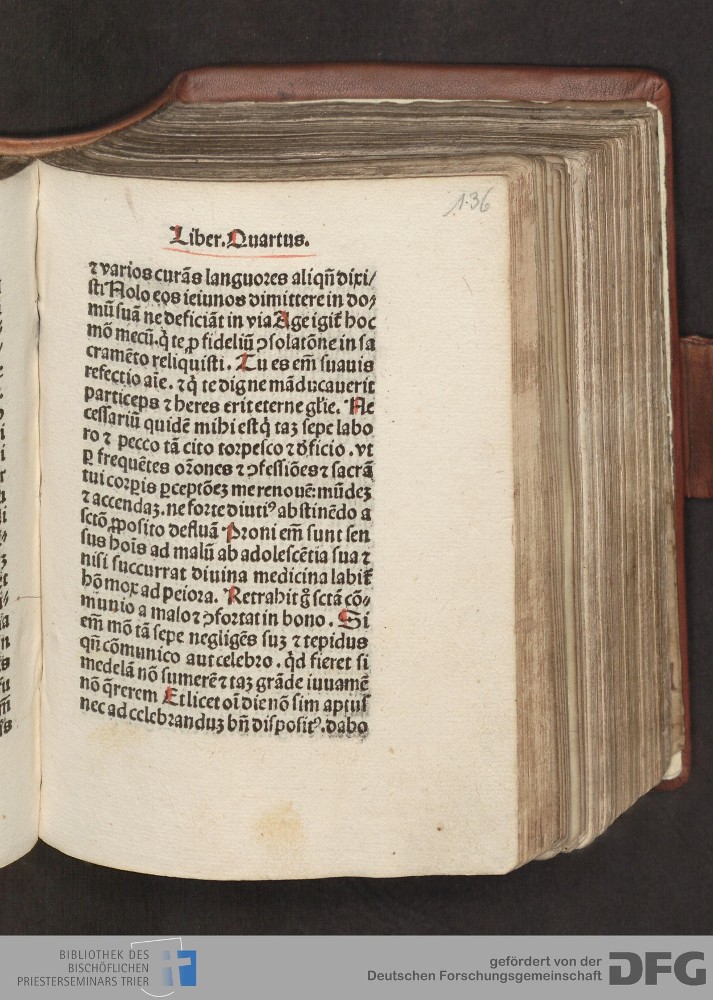 136
Liber. Quartus.
⁊ varios curās languores aliqn̄ dixi/
sti Nolo eos ieiunos dimittere in do/
mū suā ne deficiāt in via Age igit̄ hoc
mō mecū. q̇ te ꝓ fideliū ꝯsolatōne in sa
cramēto reliquisti. Tu es em̄ suauis
refectio aīe. ⁊ q̇ te digne māducauerit
particeps ⁊ heres erit eterne gl̄ie. Ne
cessariū quidē mihi est q̇ taꝫ sepe labo
ro ⁊ pecco tā cito torpesco ⁊ d̄ficio. vt
ꝑ frequētes or̄ones ⁊ ꝯfessiōes ⁊ sacrā
tui corꝑis ꝑceptōeꝫ me renouē: mūdeꝫ
⁊ accendaꝫ. ne forte diutiꝰ abstinēdo a
sctō ꝓposito defluā Proni em̄ sunt sen
sus hoīs ad malū ab adolescētia sua ⁊
nisi succurrat diuina medicina labit̄
hō mox ad peiora. Retrahit g̊ sctā cō-
munio a malo ⁊ ꝯfortat in bono. Si
em̄ mō tā sepe negligēs suꝫ ⁊ tepidus
qn̄ cōmunico aut celebro. q̇d fieret si
medelā nō sumerē ⁊ taꝫ grāde iuuamē
nō q̄rerem Et licet oī die nō sim aptus
nec ad celebranduꝫ bn̄ dispositꝰ. dabo
BIBLIOTHEK DES
BISCHÖFLICHEN
PRIESTERSEMINARS TRIER
gefördert von der
Deutschen Forschungsgemeinschaft
DFG